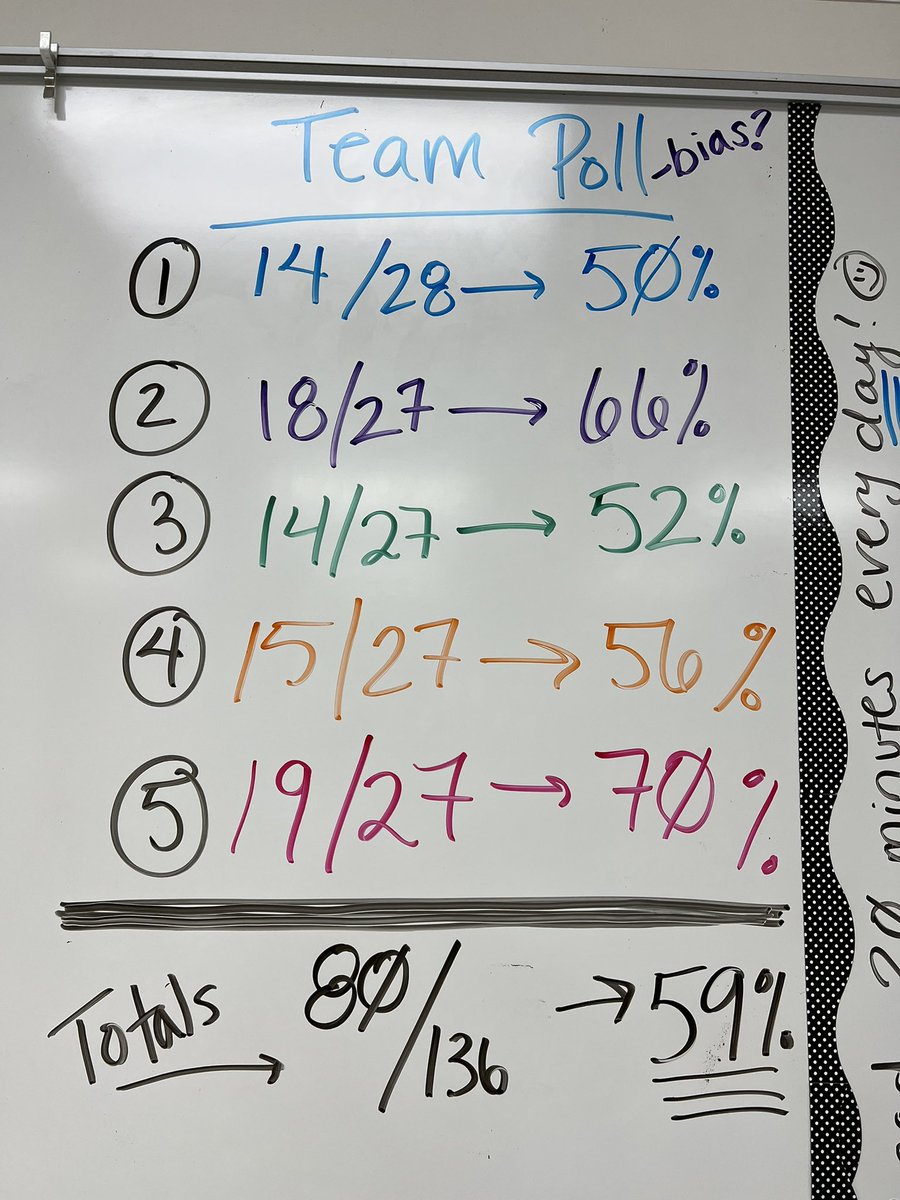 Team Poll -bias?
1 14/28 → 50%
2 18/27 → 66%
3 14/27 → 52%
4 15/27 → 56%
5 19/27 → 70%
Totals → 80/136 → 59%
20 minutes every day! ☺